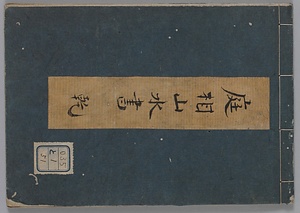 庭相山水書 乾